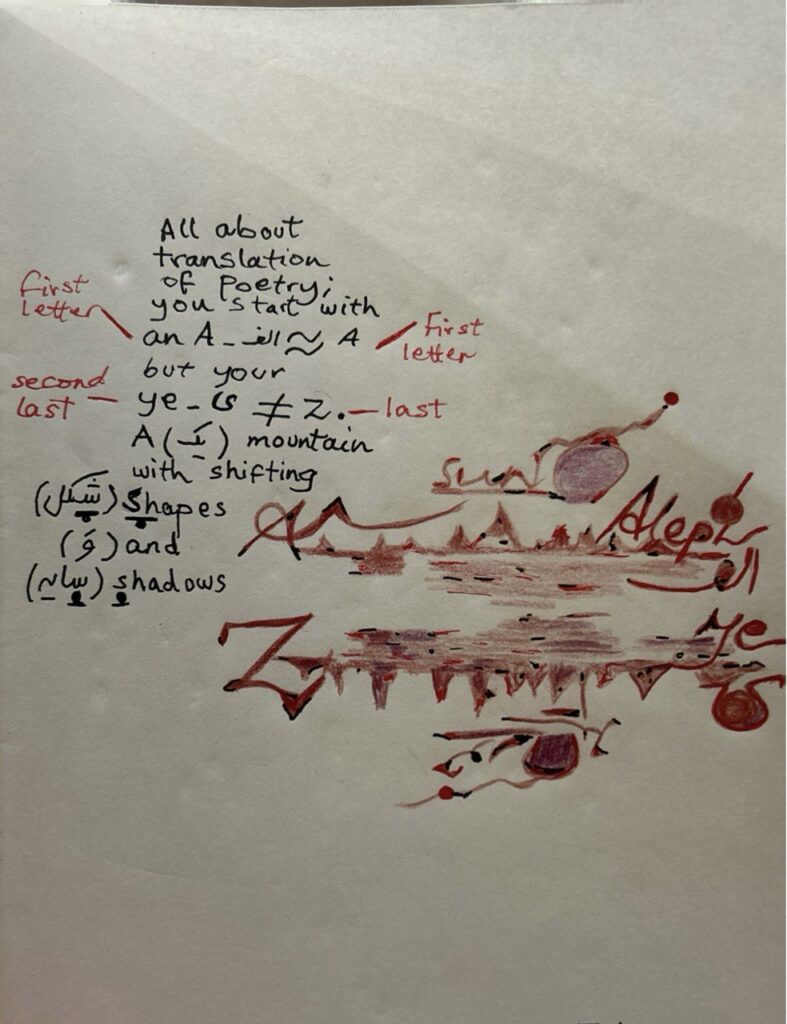 All about
translation
of Poetry;
you start with
an A - الف ≈ A
but your
ye - ی ≠ Z.
A (یک) mountain
with shifting
(شکل) Shapes
(وَ) and
(سایه) shadows
First
letter
First
letter
second
last
last
SUN
A
Aleph
الف
Z
Ye
ی